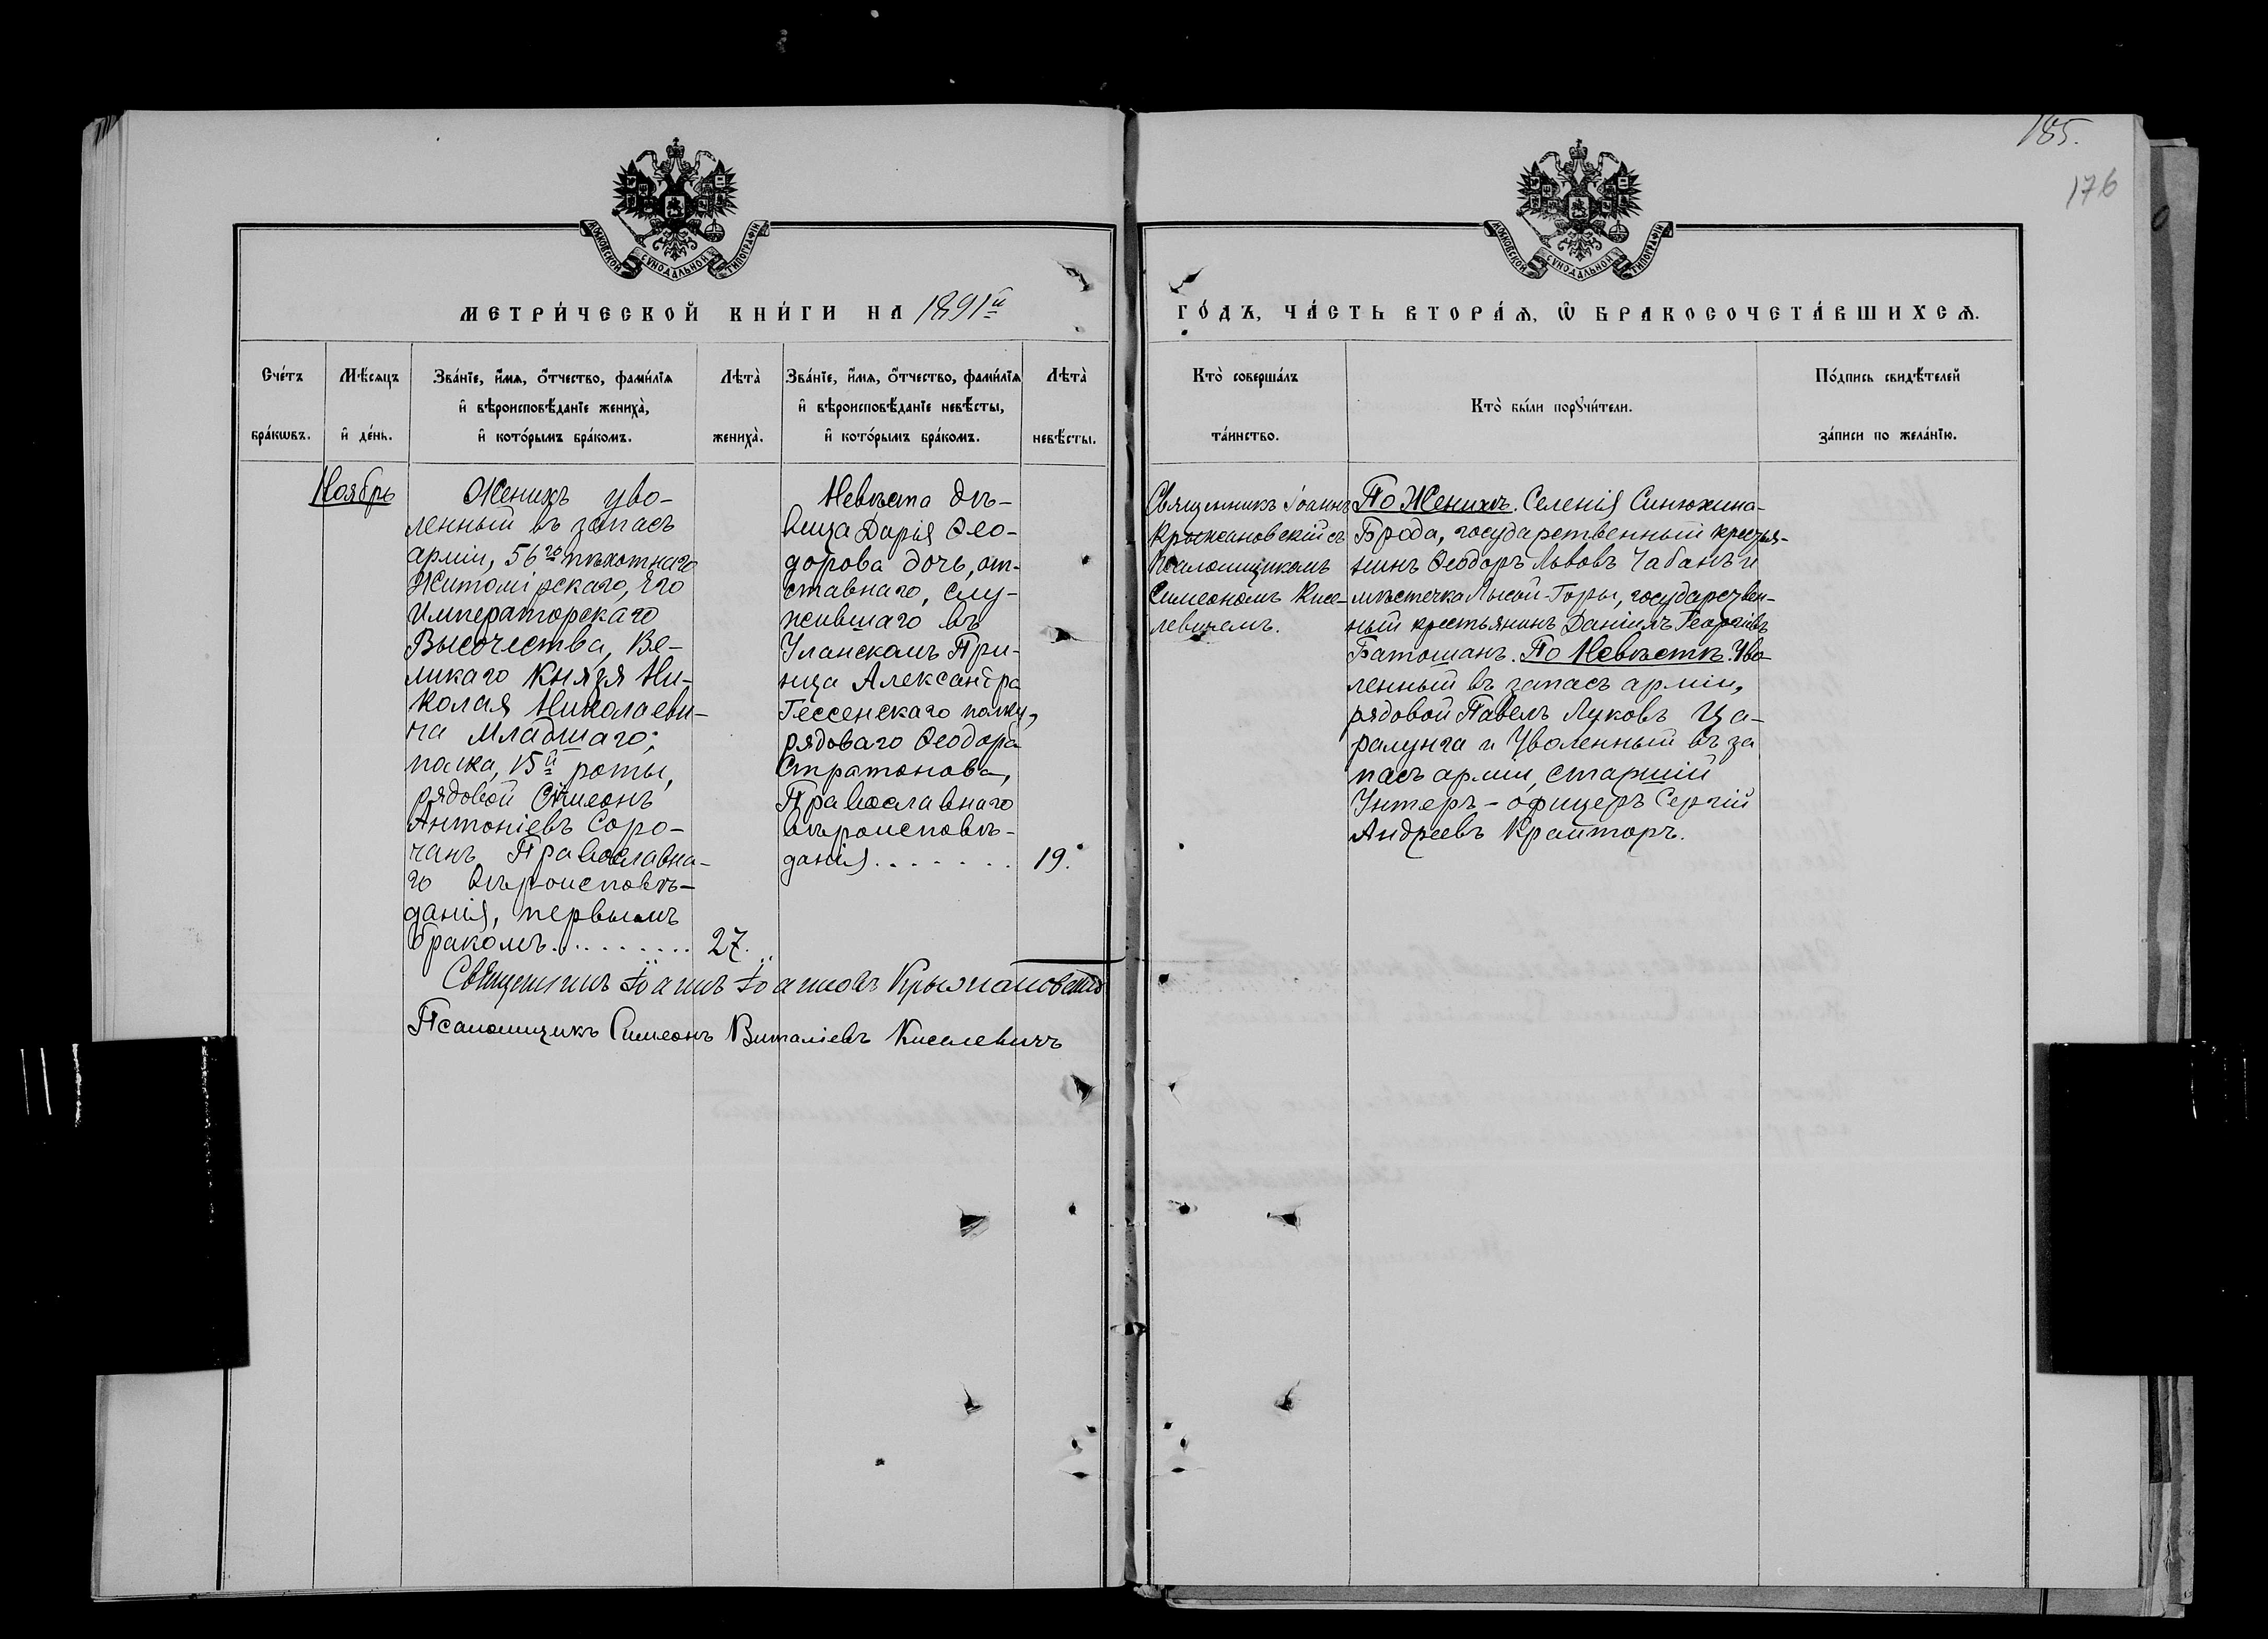 185.
176
МОСКОВСКОЙ СУНОДАЛЬНОЙ ТИПОГРАФІИ
МОСКОВСКОЙ СУНОДАЛЬНОЙ ТИПОГРАФІИ
МЕТРИ́ЧЕСКОЙ КНИ́ГИ НА 1891й
ГО́ДЪ, ЧА́СТЬ ВТОРА́Ѧ, Ѡ҆ БРАКОСОЧЕТА́ВШИХСѦ.
Сче́тъ бра́кѡвъ.
Мѣ́сѧцъ и҆ де́нь.
Зва́нїе, и҆́мѧ, ѻ҆́тчество, фами́лїѧ
и҆ вѣроисповѣ́данїе жениха̀,
и҆ кото́рымъ бра́комъ.
Лѣта̀ жениха̀.
Зва́нїе, и҆́мѧ, ѻ҆́тчество, фами́лїѧ
и҆ вѣроисповѣ́данїе невѣ́сты,
и҆ кото́рымъ бра́комъ.
Лѣта̀ невѣ́сты.
Кто̀ соверша́лъ та́инство.
Кто̀ бы́ли порꙋчи́тели.
По́дпись свидѣ́телей за́писи по жела́нїю.
Ноябрь
Женихъ уво-
ленный въ запасъ
арміи, 56го пѣхотнаго
Житомірскаго, Его
Императорскаго
Высочества, Ве-
ликаго Князя Ни-
колая Николаеви-
ча Младшаго;
полка, 15й роты,
рядовой Симеонъ
Антоніевъ Соро-
чанъ Православна-
го вѣроисповѣ-
данія, первымъ
бракомъ.......... 27.
Невѣста дѣ-
вица Дарія Ѳео-
дорова дочь, от-
ставнаго, слу-
жившаго въ
Уланскомъ При-
нца Александра
Гессенскаго полку,
рядоваго Ѳеодора
Стратонова,
Православнаго
вѣроисповѣ-
данія....... 19.
Священникъ Іоаннъ
Крыжановскій съ
Псаломщикомъ
Симеономъ Кисе-
левичемъ.
По Женихѣ. Селенія Синюхина-
Брода, государственный крестья-
нинъ Ѳеодоръ Львовъ Чабанъ и
мѣстечка Лысой-Горы, государствен-
ный крестьянинъ Даніилъ Георгіевъ
Батошанъ. По Невѣстѣ. Уво-
ленный въ запасъ арміи,
рядовой Павелъ Луковъ Ца-
ралунга и Уволенный въ за
пасъ арміи, старшій
Унтеръ-офицеръ Сергій
Андреевъ Крайторъ.
Священникъ Іоаннъ Іоанновъ Крыжановскій
Псаломщикъ Симеонъ Виталіевъ Киселевичъ